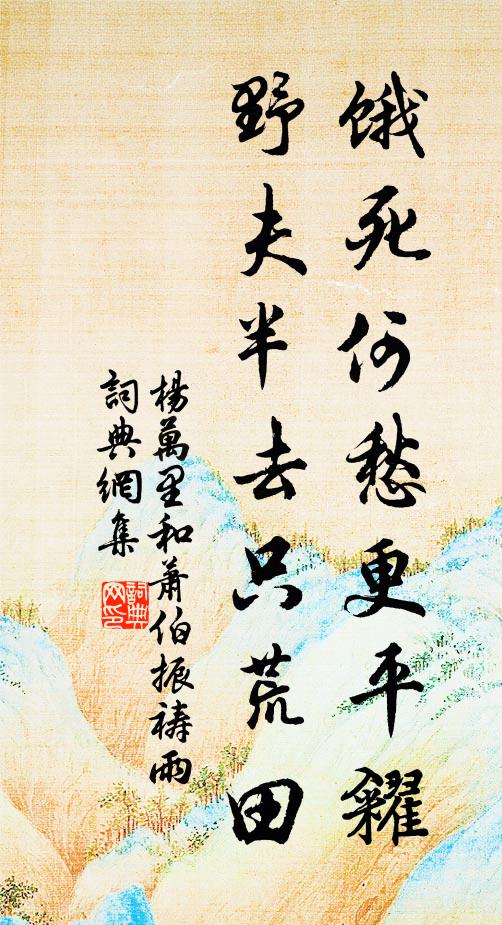 餓死何愁更平糴
野夫半去只荒田
楊萬里和蕭伯振禱雨
詞典網集
詞典网印